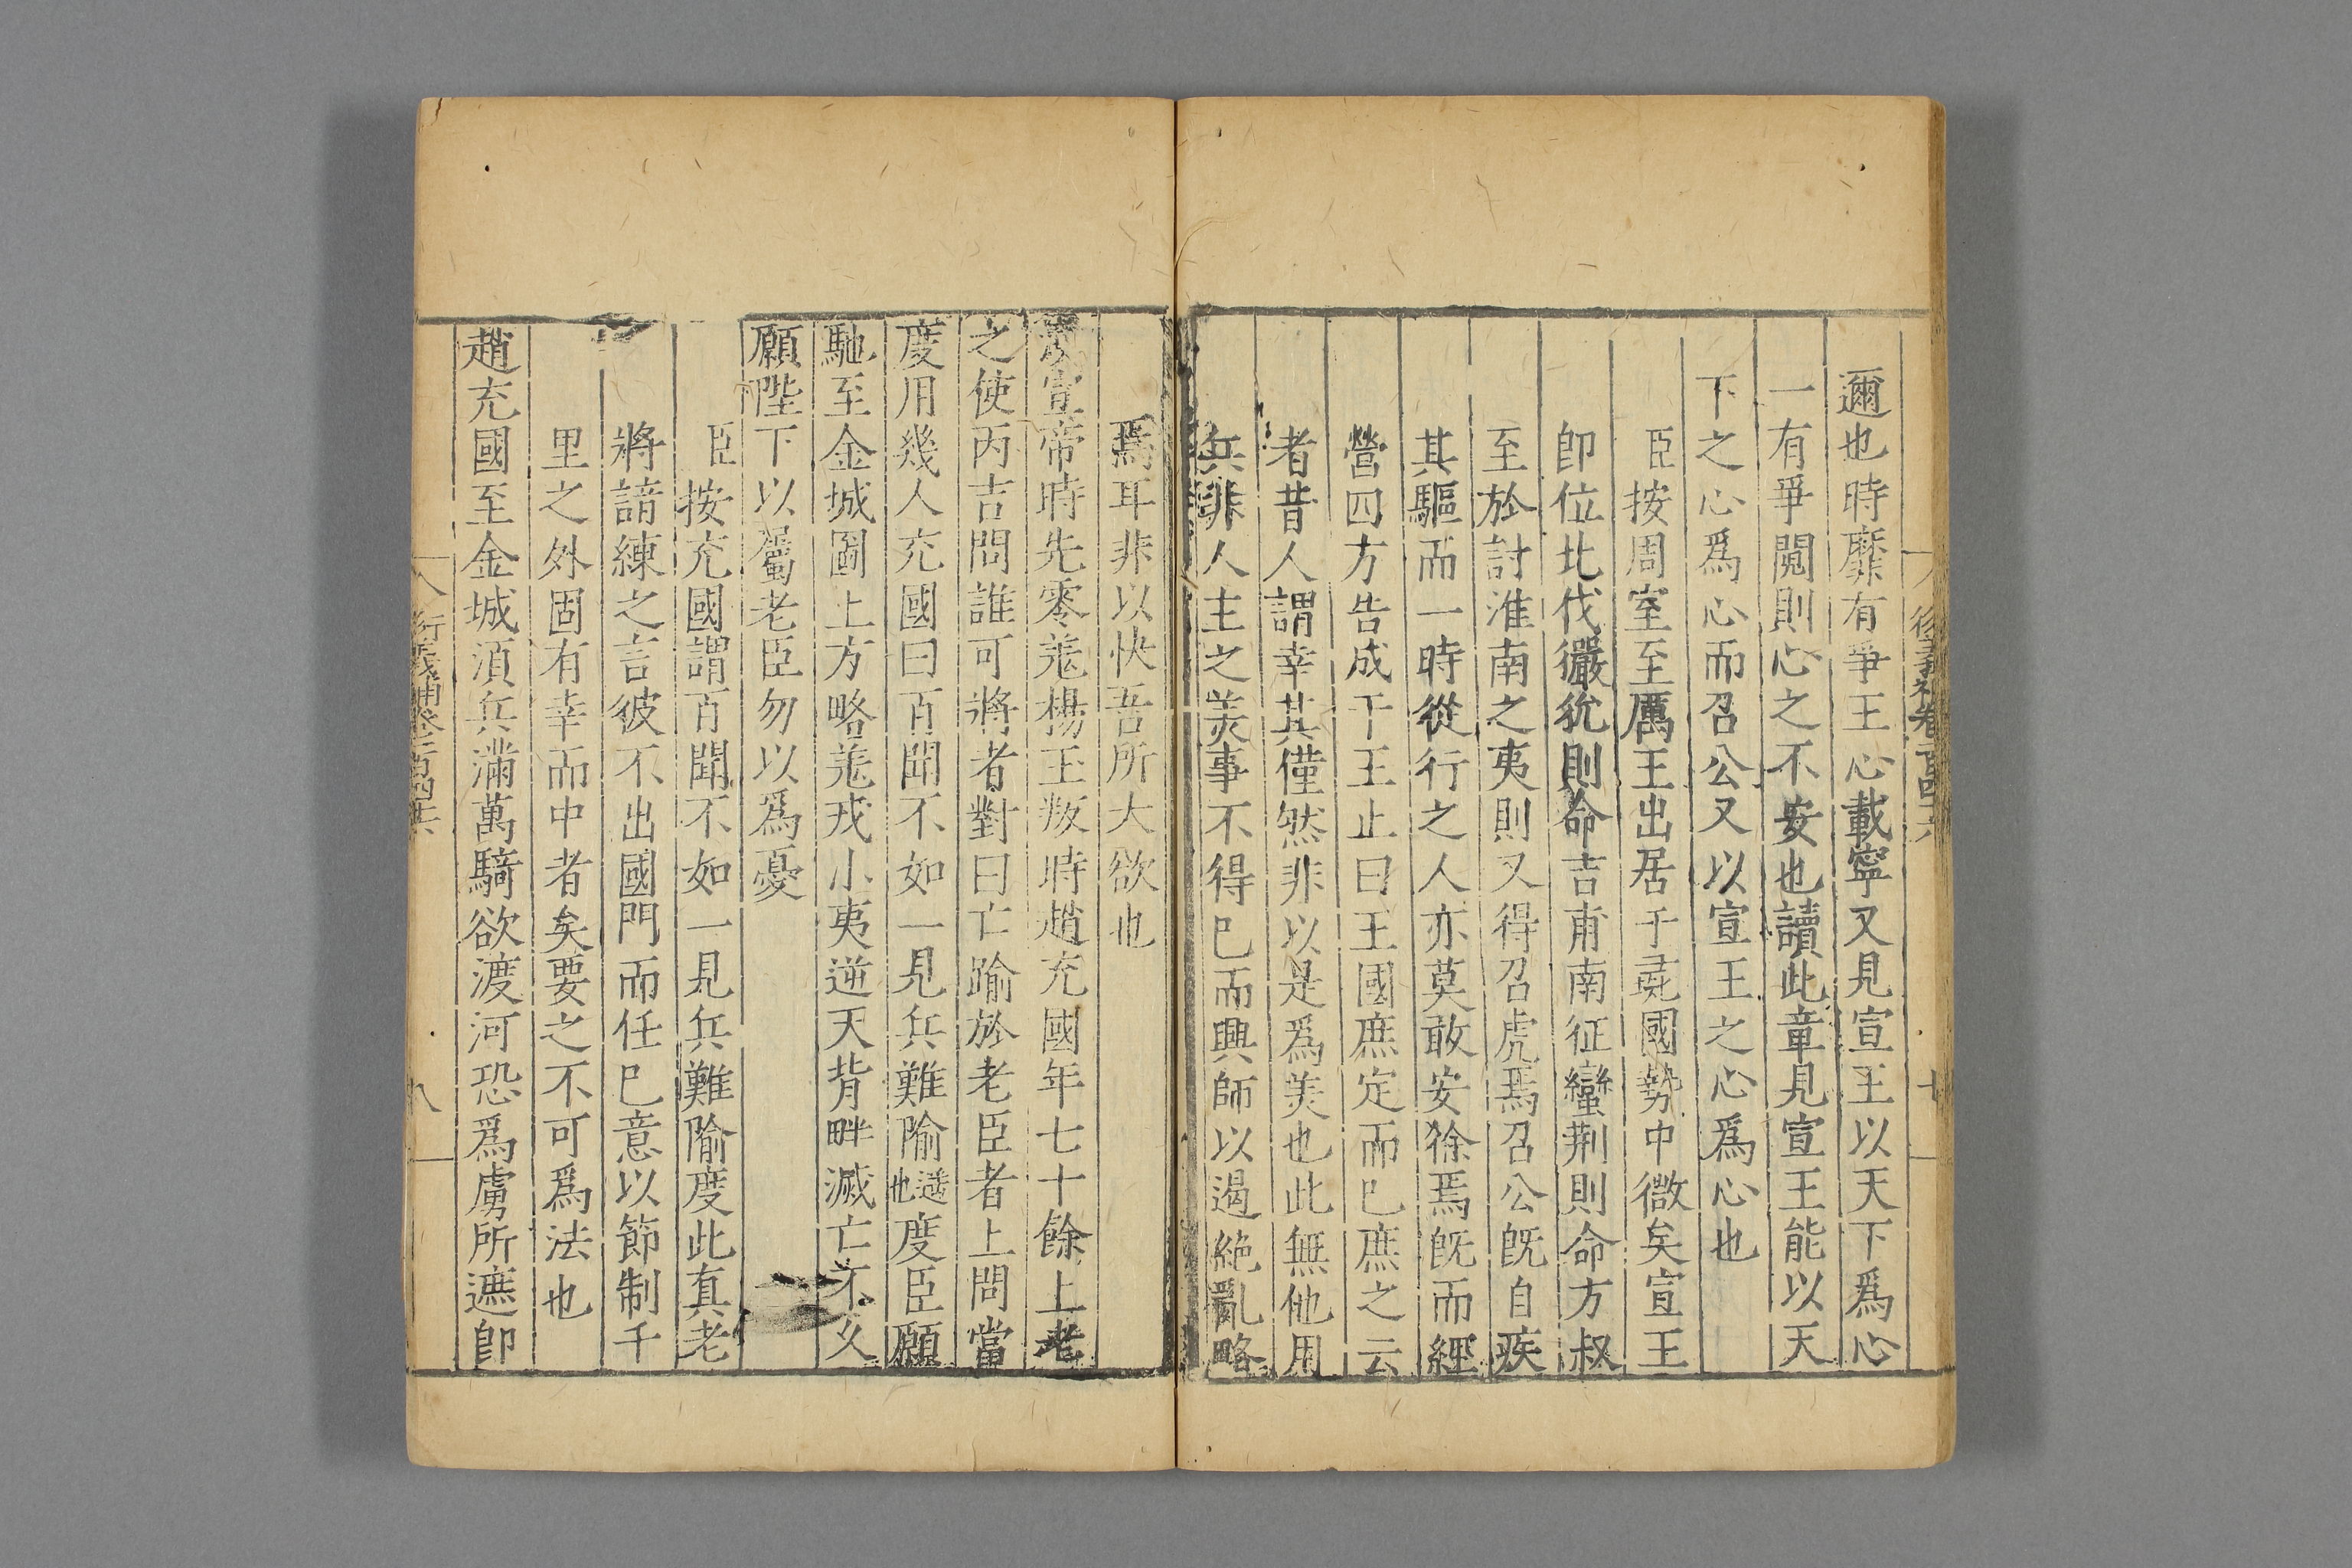 衍義補卷一百四六
七
邇也時靡有爭王心載寧又見宣王以天下爲心
一有爭鬩則心之不安也讀此章見宣王能以天
下之心爲心而召公又以宣王之心爲心也
臣按周室至厲王出居于彘國勢中微矣宣王
卽位北伐玁狁則命吉甫南征蠻荆則命方叔
至於討淮南之夷則又得召虎焉召公旣自疾
其驅而一時從行之人亦莫敢安徐焉旣而經
營四方告成于王止曰王國庶定而已庶之云
者昔人謂幸其僅然非以是爲美也此無他用
兵非人主之美事不得已而興師以遏絶亂略
焉耳非以快吾所大欲也
漢宣帝時先零羌楊玉叛時趙充國年七十餘上老
之使丙吉問誰可將者對曰亡踰於老臣者上問當
度用幾人充國曰百聞不如一見兵難隃遥也度臣願
馳至金城圖上方略羌戎小夷逆天背畔滅亡不久
願陛下以屬老臣勿以爲憂
臣按充國謂百聞不如一見兵難隃度此真老
將諳練之言彼不出國門而任已意以節制千
里之外固有幸而中者矣要之不可爲法也
趙充國至金城湏兵滿萬騎欲渡河恐爲虜所遮卽
衍義補卷一百四六
八